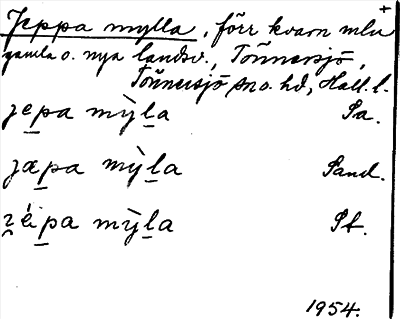 Jeppa mylla, förr kvarn mlu +
gamla o. nya landsv., Tönnersjö,
Tönnersjö sn o. hd, Hall. l.
jepa mỳla Sa.
jæpa mỳla Sand.
mỳla St.
1954.